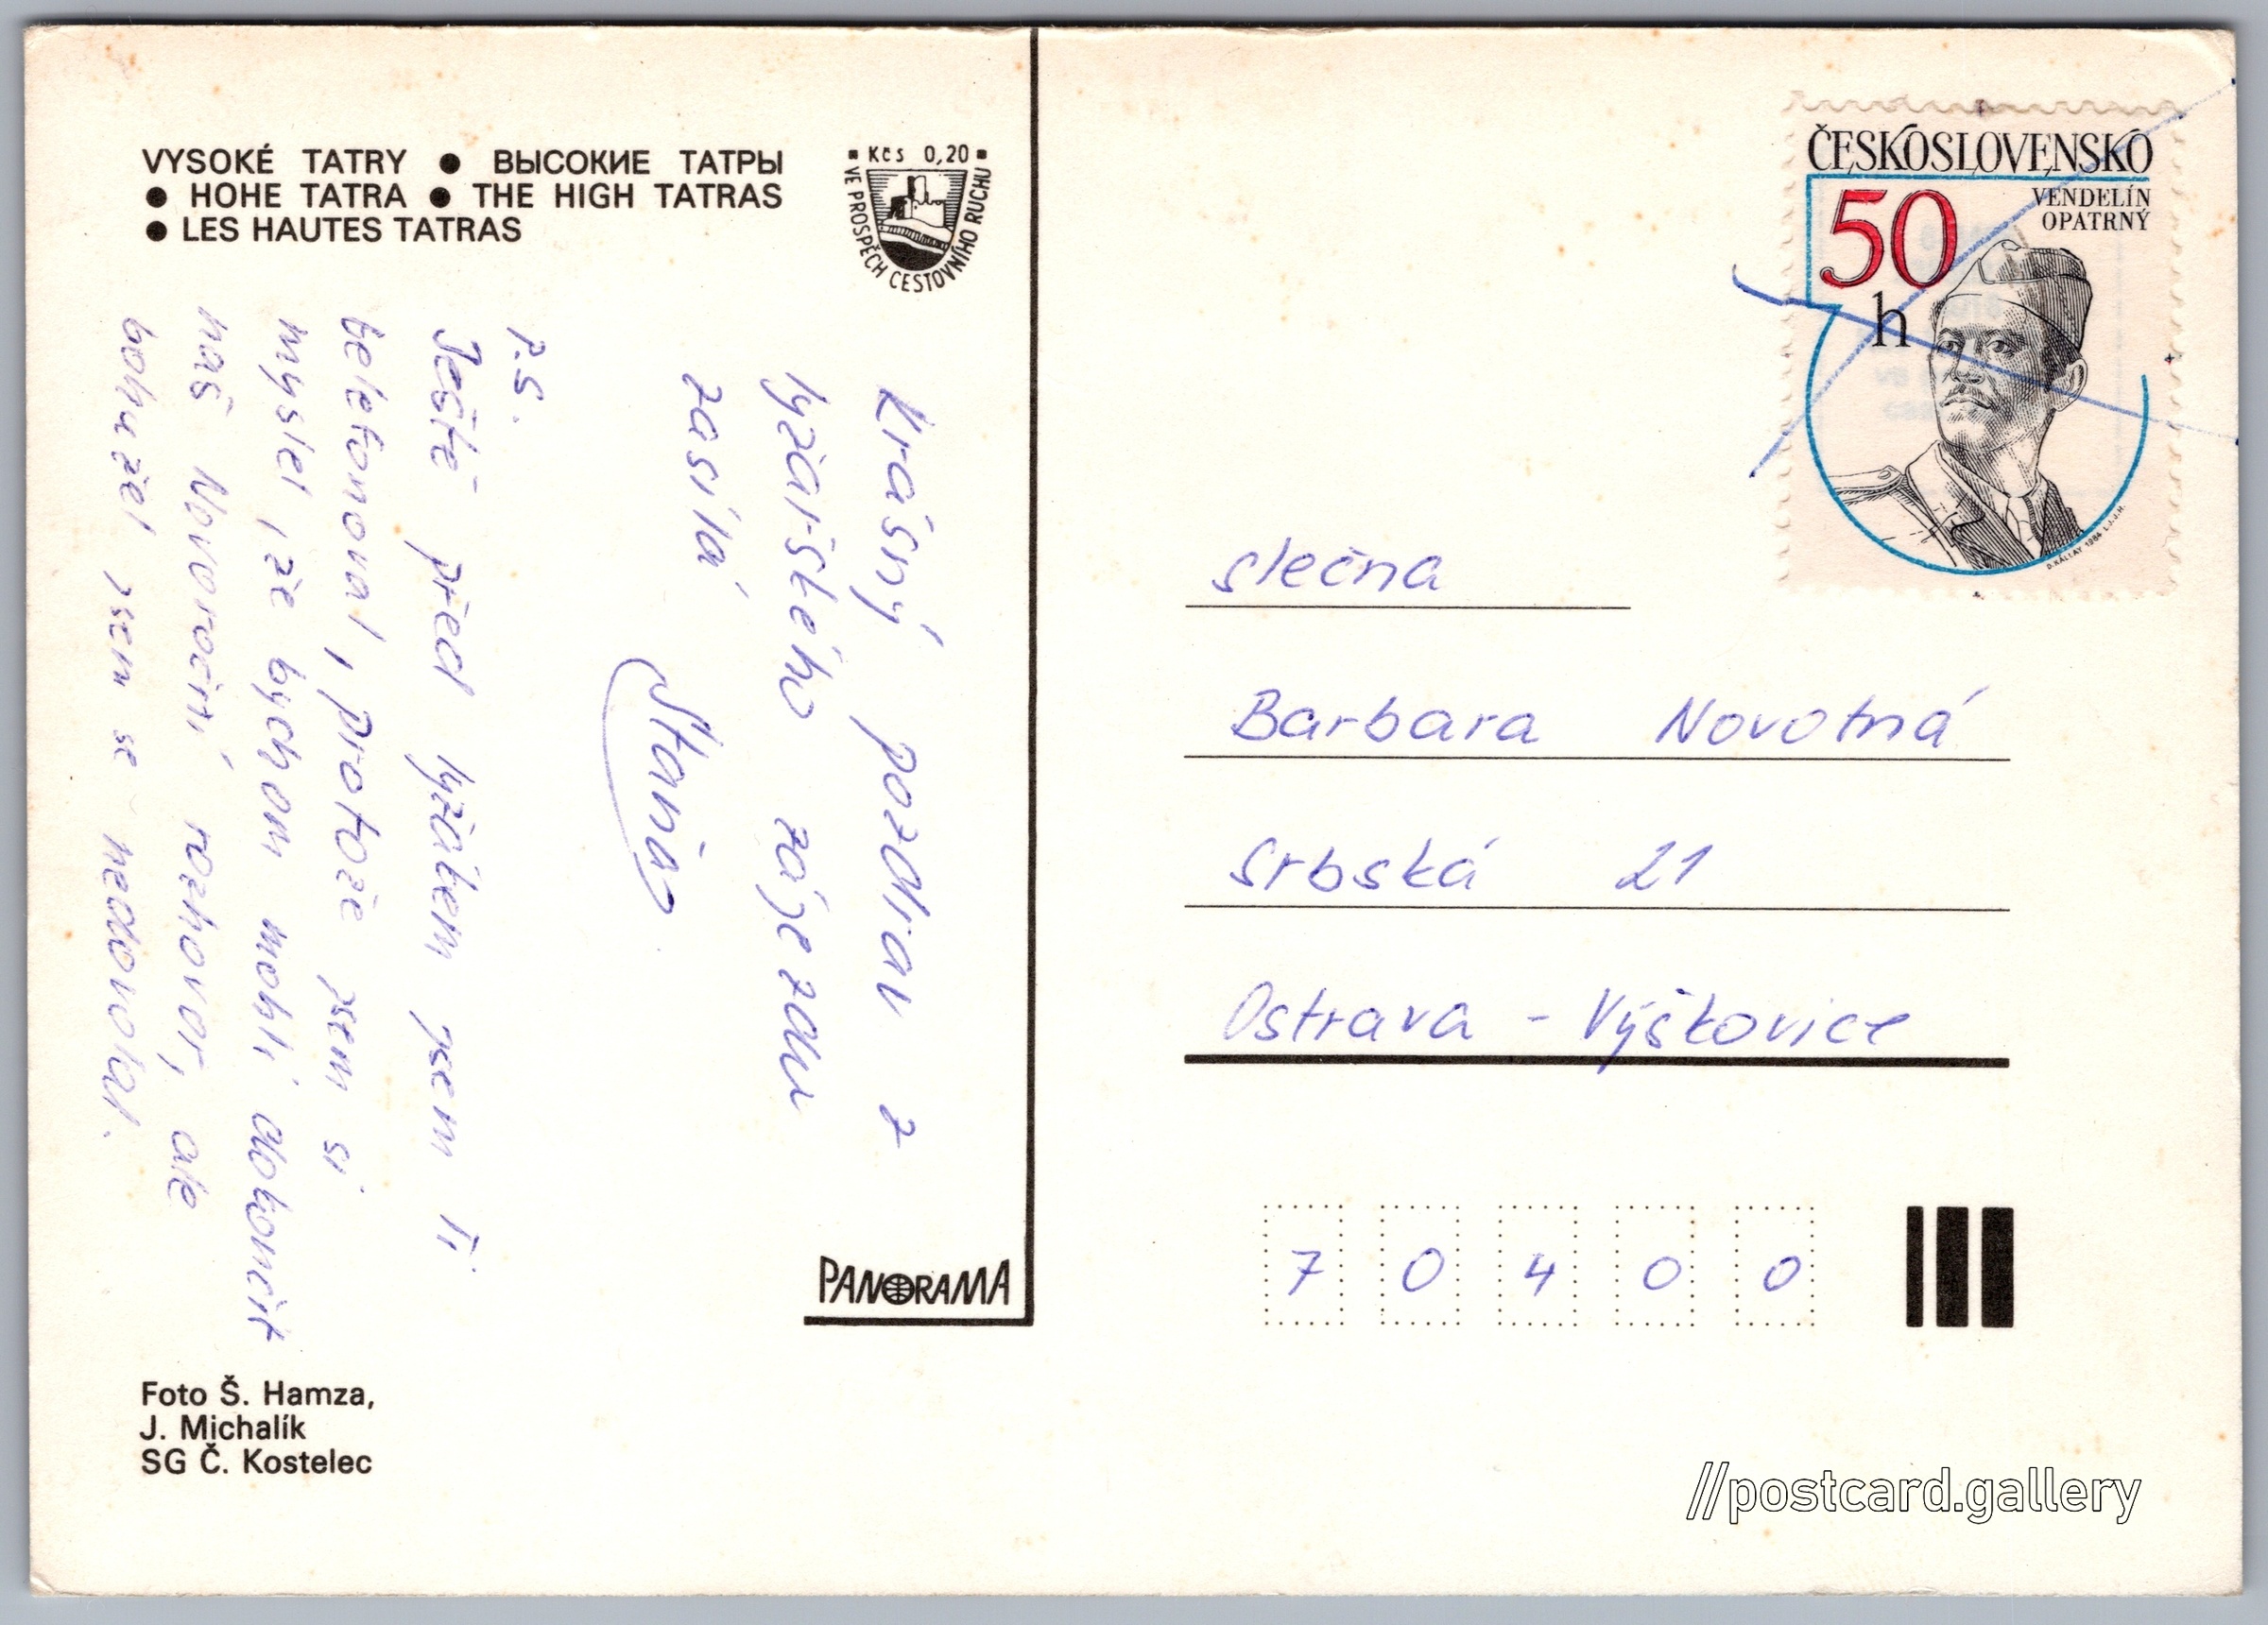 VYSOKÉ TATRY ● ВЫСОКИЕ ТАТРЫ
● HOHE TATRA ● THE HIGH TATRAS
● LES HAUTES TATRAS
Kčs 0,20
VE PROSPĚCH CESTOVNÍHO RUCHU
Krásný pozdrav z
lyžařského zájezdu
zasílá
Stania
P.S.
Ještě před lyžákem jsem Ti
telefonoval, protože jsem si
myslel, že bychom mohli dokončit
náš Novoroční rozhovor, ale
bohužel jsem se nedovolal.
PANORAMA
Foto Š. Hamza,
J. Michalík
SG Č. Kostelec
ČESKOSLOVENSKO
50
h
VENDELÍN
OPATRNÝ
D. KÁLLAY 1984 L.J.J.H.
slečna
Barbara Novotná
Srbská 21
Ostrava - Výškovice
7 0 4 0 0
//postcard.gallery